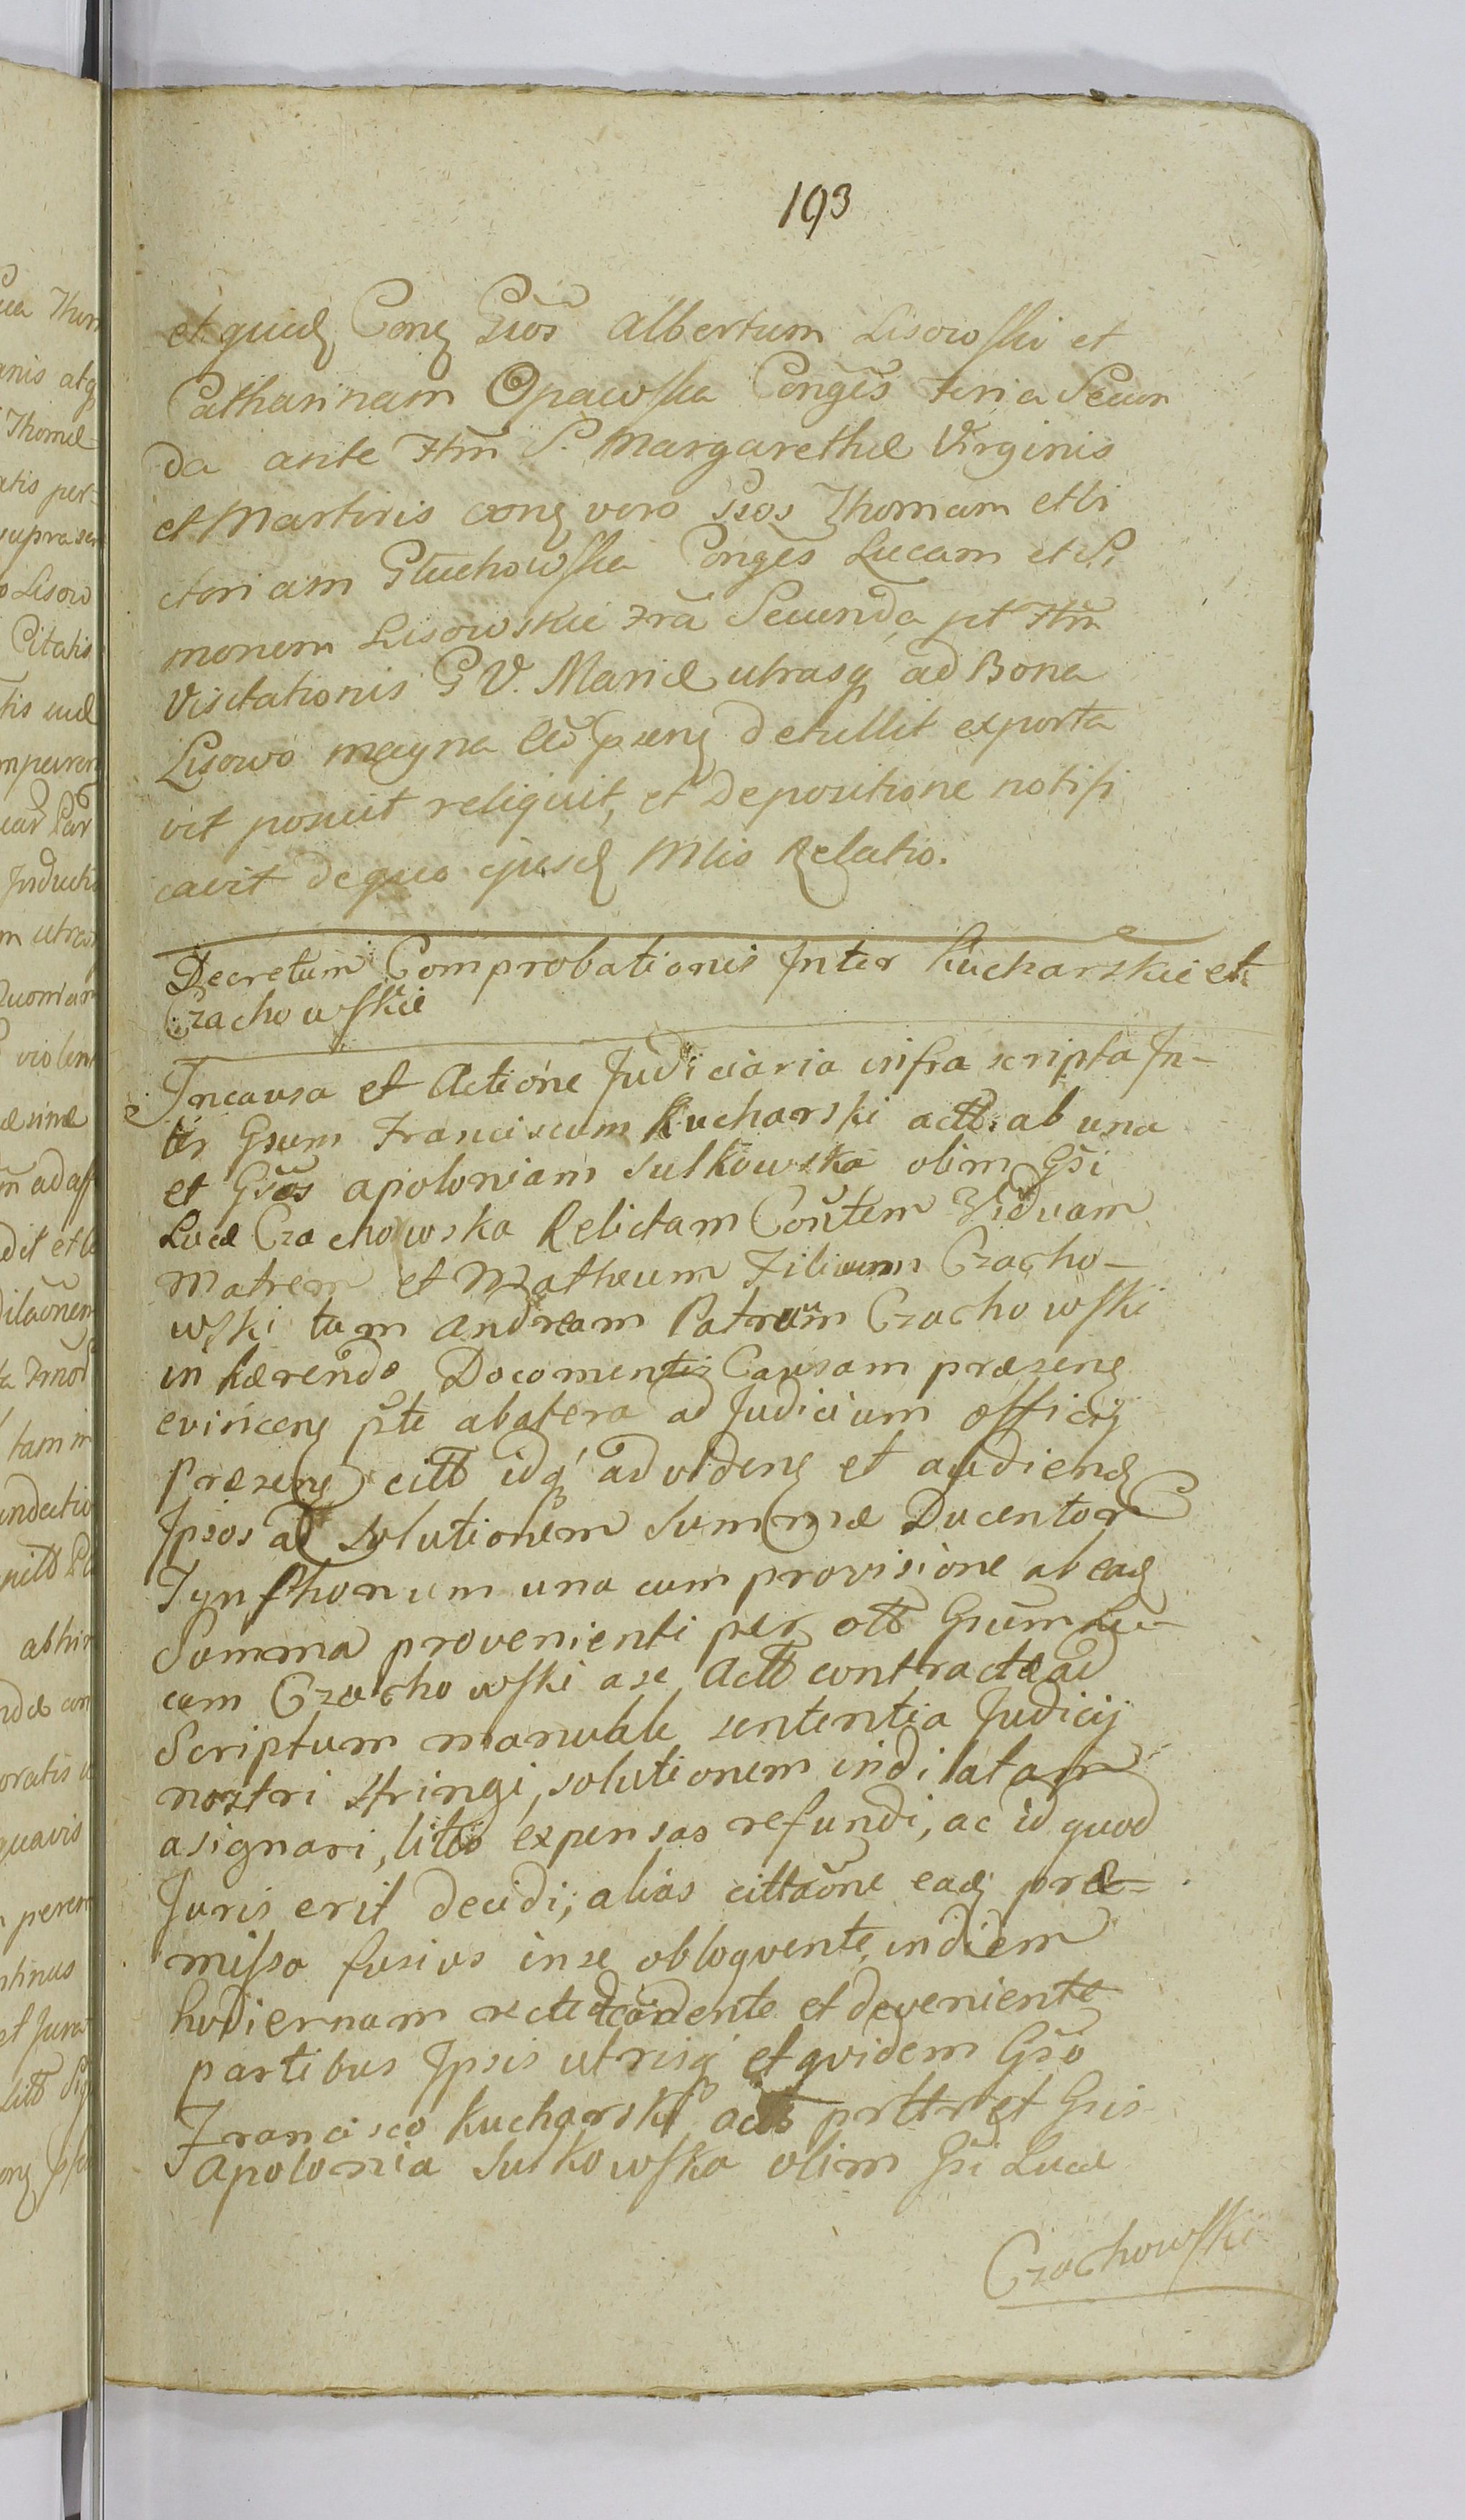 193
et quid Conz Gsos Albertum Lisowski et
Catharinam Opawska Conges Feria Secun
da ante Ftm S. Margarethæ Virginis
et Martiris aong vero Gsos Thomam et Vi
ctoriam Głuchowska Conges Lucam et Si
monem Lisowskie Fra Secunda pt Ftm
Visitationis B V. Mariæ utrasq ad Bona
Lisowo magna detullit exporta
vit posuit reliquit, et depositione notifi
cavit de quo ejusd Mlis Relatio.
Decretum Comprobationis Inter Kucharskie et
Czachowskie
In causa et Actione Judiciaria infra scripta In-
ter Gsum Franciscum Kucharski actt. ab una
et Gsos Apoloniam Sulkowska olim Gsi
Lucæ Czachowska Relictam Contem Viduam
Matrem et Matheum Filium Czacho-
wski tum Andream Patruum Czachowski
in hærende Documentis Causam præsenz
evincenz pte ab altera ad Judicium officij
præsenz citt idq ad videnz et audienz
Ipsos ad solutionem Summæ Ducentor
Tynfhonum una cum provisione ab ead
Summa provenienti per ott Gsum Lu-
cam Czachowski a se Actt contractæ ad
Scriptum manuale sententia Judicij
nostri stringi, solutionem indilatam
asignari, litis expensas refundi, ac id quod
Juris erit decidi, alias cittaone ead præ-
missa fusius in se obloquente, in diem
hodiernam recte cadente et deveniente
partibus Ipsis utrisq et quidem Gso
Francisco Kucharski actt et Gsis
Apolonia Sulkowska olim Gsi Lucæ
Czachowski